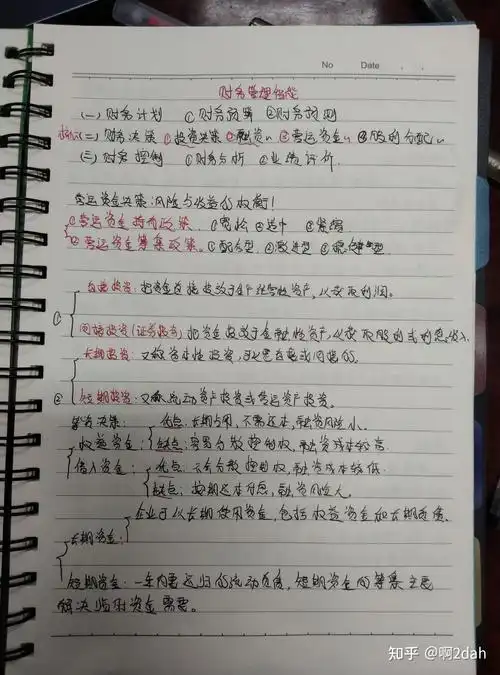 No Date
财务管理职能
(一) 财务计划 ①财务预算 ②财务预测
核心(二) 财务决策 ①投资决策 ②融资〃 ③营运资金〃 ④股利分配〃
(三) 财务控制 ①财务分析 ②业绩评价.
营运资金决策:风险与收益的权衡!
①营运资金持有政策. ①宽松 ②适中 ③紧缩
②营运资金筹集政策. ①配合型. ②激进型 ③稳健型
① 直接投资: 把资金直接投放于生产经营性资产, 以获取利润。
间接投资(证券投资) 把资金投放于金融性资产, 以获取股利或利息收入.
长期投资: 又称资本性投资, 可以是直接或间接的。
② 短期投资: 又称流动资产投资或营运资产投资。
筹资决策: 优点: 长期占用, 不需还本, 融资风险小.
权益资金: 缺点: 容易分散控制权, 融资成本较高
借入资金: 优点: 不会分散控制权, 融资成本较低
缺点: 按期还本付息, 融资风险大
企业可以长期使用资金, 包括权益资金和长期负债.
长期资金:
短期资金: 一年内要归还的流动负债, 短期资金的筹集主要
解决临时资金需要。
知乎 @啊2dah